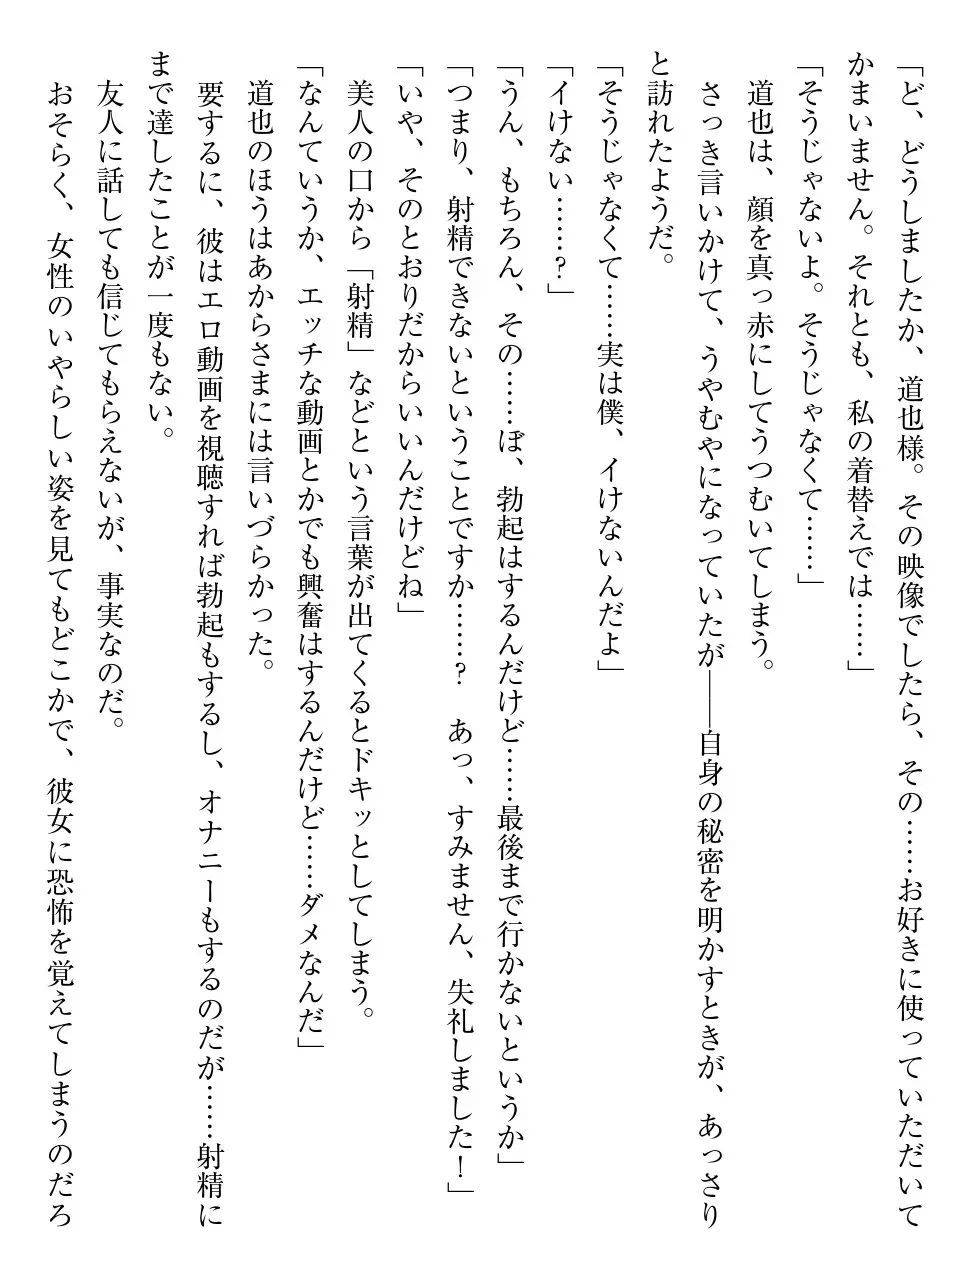 「ど、どうしましたか、道也様。その映像でしたら、その……お好きに使っていただいて
かまいません。それとも、私の着替えでは……」
「そうじゃないよ。そうじゃなくて……」
　道也は、顔を真っ赤にしてうつむいてしまう。
　さっき言いかけて、うやむやになっていたが――自身の秘密を明かすときが、あっさり
と訪れたようだ。
「そうじゃなくて……実は僕、イけないんだよ」
「イけない……？」
「うん、もちろん、その……ぼ、勃起はするんだけど……最後まで行かないというか」
「つまり、射精できないということですか……？　あっ、すみません、失礼しました！」
「いや、そのとおりだからいいんだけどね」
　美人の口から「射精」などという言葉が出てくるとドキッとしてしまう。
「なんていうか、エッチな動画とかでも興奮はするんだけど……ダメなんだ」
　道也のほうはあからさまには言いづらかった。
　要するに、彼はエロ動画を視聴すれば勃起もするし、オナニーもするのだが……射精に
まで達したことが一度もない。
　友人に話しても信じてもらえないが、事実なのだ。
　おそらく、女性のいやらしい姿を見てもどこかで、彼女に恐怖を覚えてしまうのだろ